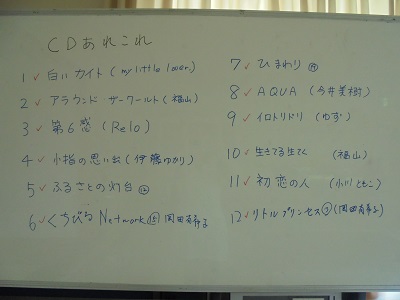 CDあれこれ
1 ✓ 白いカイト (my little lover)
2 ✓ アラウンド ザ・ワールト (福山)
3 ✓ 第6感 (Relo)
4 ✓ 小指の思い出 (伊藤ゆかり)
5 ✓ ふるさとの灯台
6 ✓ くちびるNetwork 岡田有希子
7 ✓ ひまわり
8 ✓ AQUA (今井美樹)
9 ✓ イロトリドリ (ゆず)
10 ✓ 生きてる生きてく (福山)
11 ✓ 初恋の人 (小川ともこ)
12 ✓ リトルプリンセス (岡田有希子)